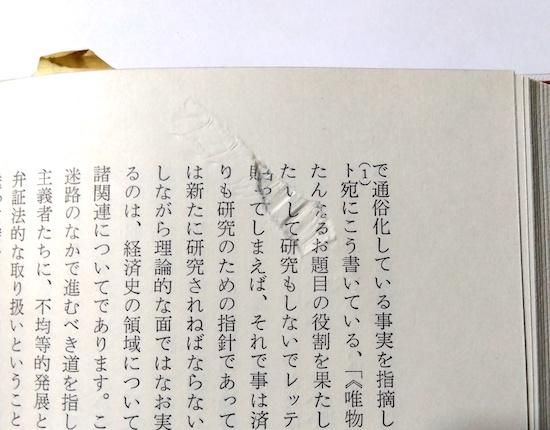 で通俗化している事実を指摘し
(1)
ト宛にこう書いている、「《唯物
たんなるお題目の役割を果たし
たいして研究もしないでレッテ
貼ってしまえば、それで事は済
りも研究のための指針であって
は新たに研究されねばならない
しながら理論的な面ではなお実
るのは、経済史の領域について
諸関連についてであります。こ
迷路のなかで進むべき道を指し
主義者たちに、不均等的発展と
弁証法的な取り扱いということ